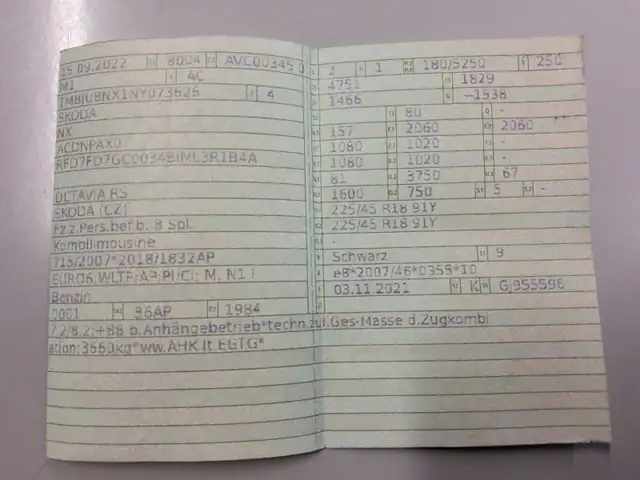 15.09.2022 8004 AVC00345 0
M1 AC
TMBJU8NX1NY073626 4
SKODA
NX
ACDNPAX0
RFD7FD7GC0034BIML3R1B4A
OCTAVIA RS
SKODA (CZ)
Fz.z.Pers.bef.b. 8 Spl.
Kombilimousine
715/2007*2018/1832AP
EURO6 WLTP;AP;PI/CI; M, N1 I
Benzin
0001 36AP 1984
7.2/8.2:+88 b.Anhängebetrieb*techn.zul.Ges-Masse d.Zugkombi
ation:3660kg*ww.AHK lt.EGTG*
2 1 180/5250 250
4751 1829
1466 —1538
80 -
157 2060 2060
1080 1020 -
1080 1020 -
81 3750 67
1600 750 5 -
225/45 R18 91Y
225/45 R18 91Y
-
Schwarz 9
e8*2007/46*0358*10
03.11.2021 K GJ955596